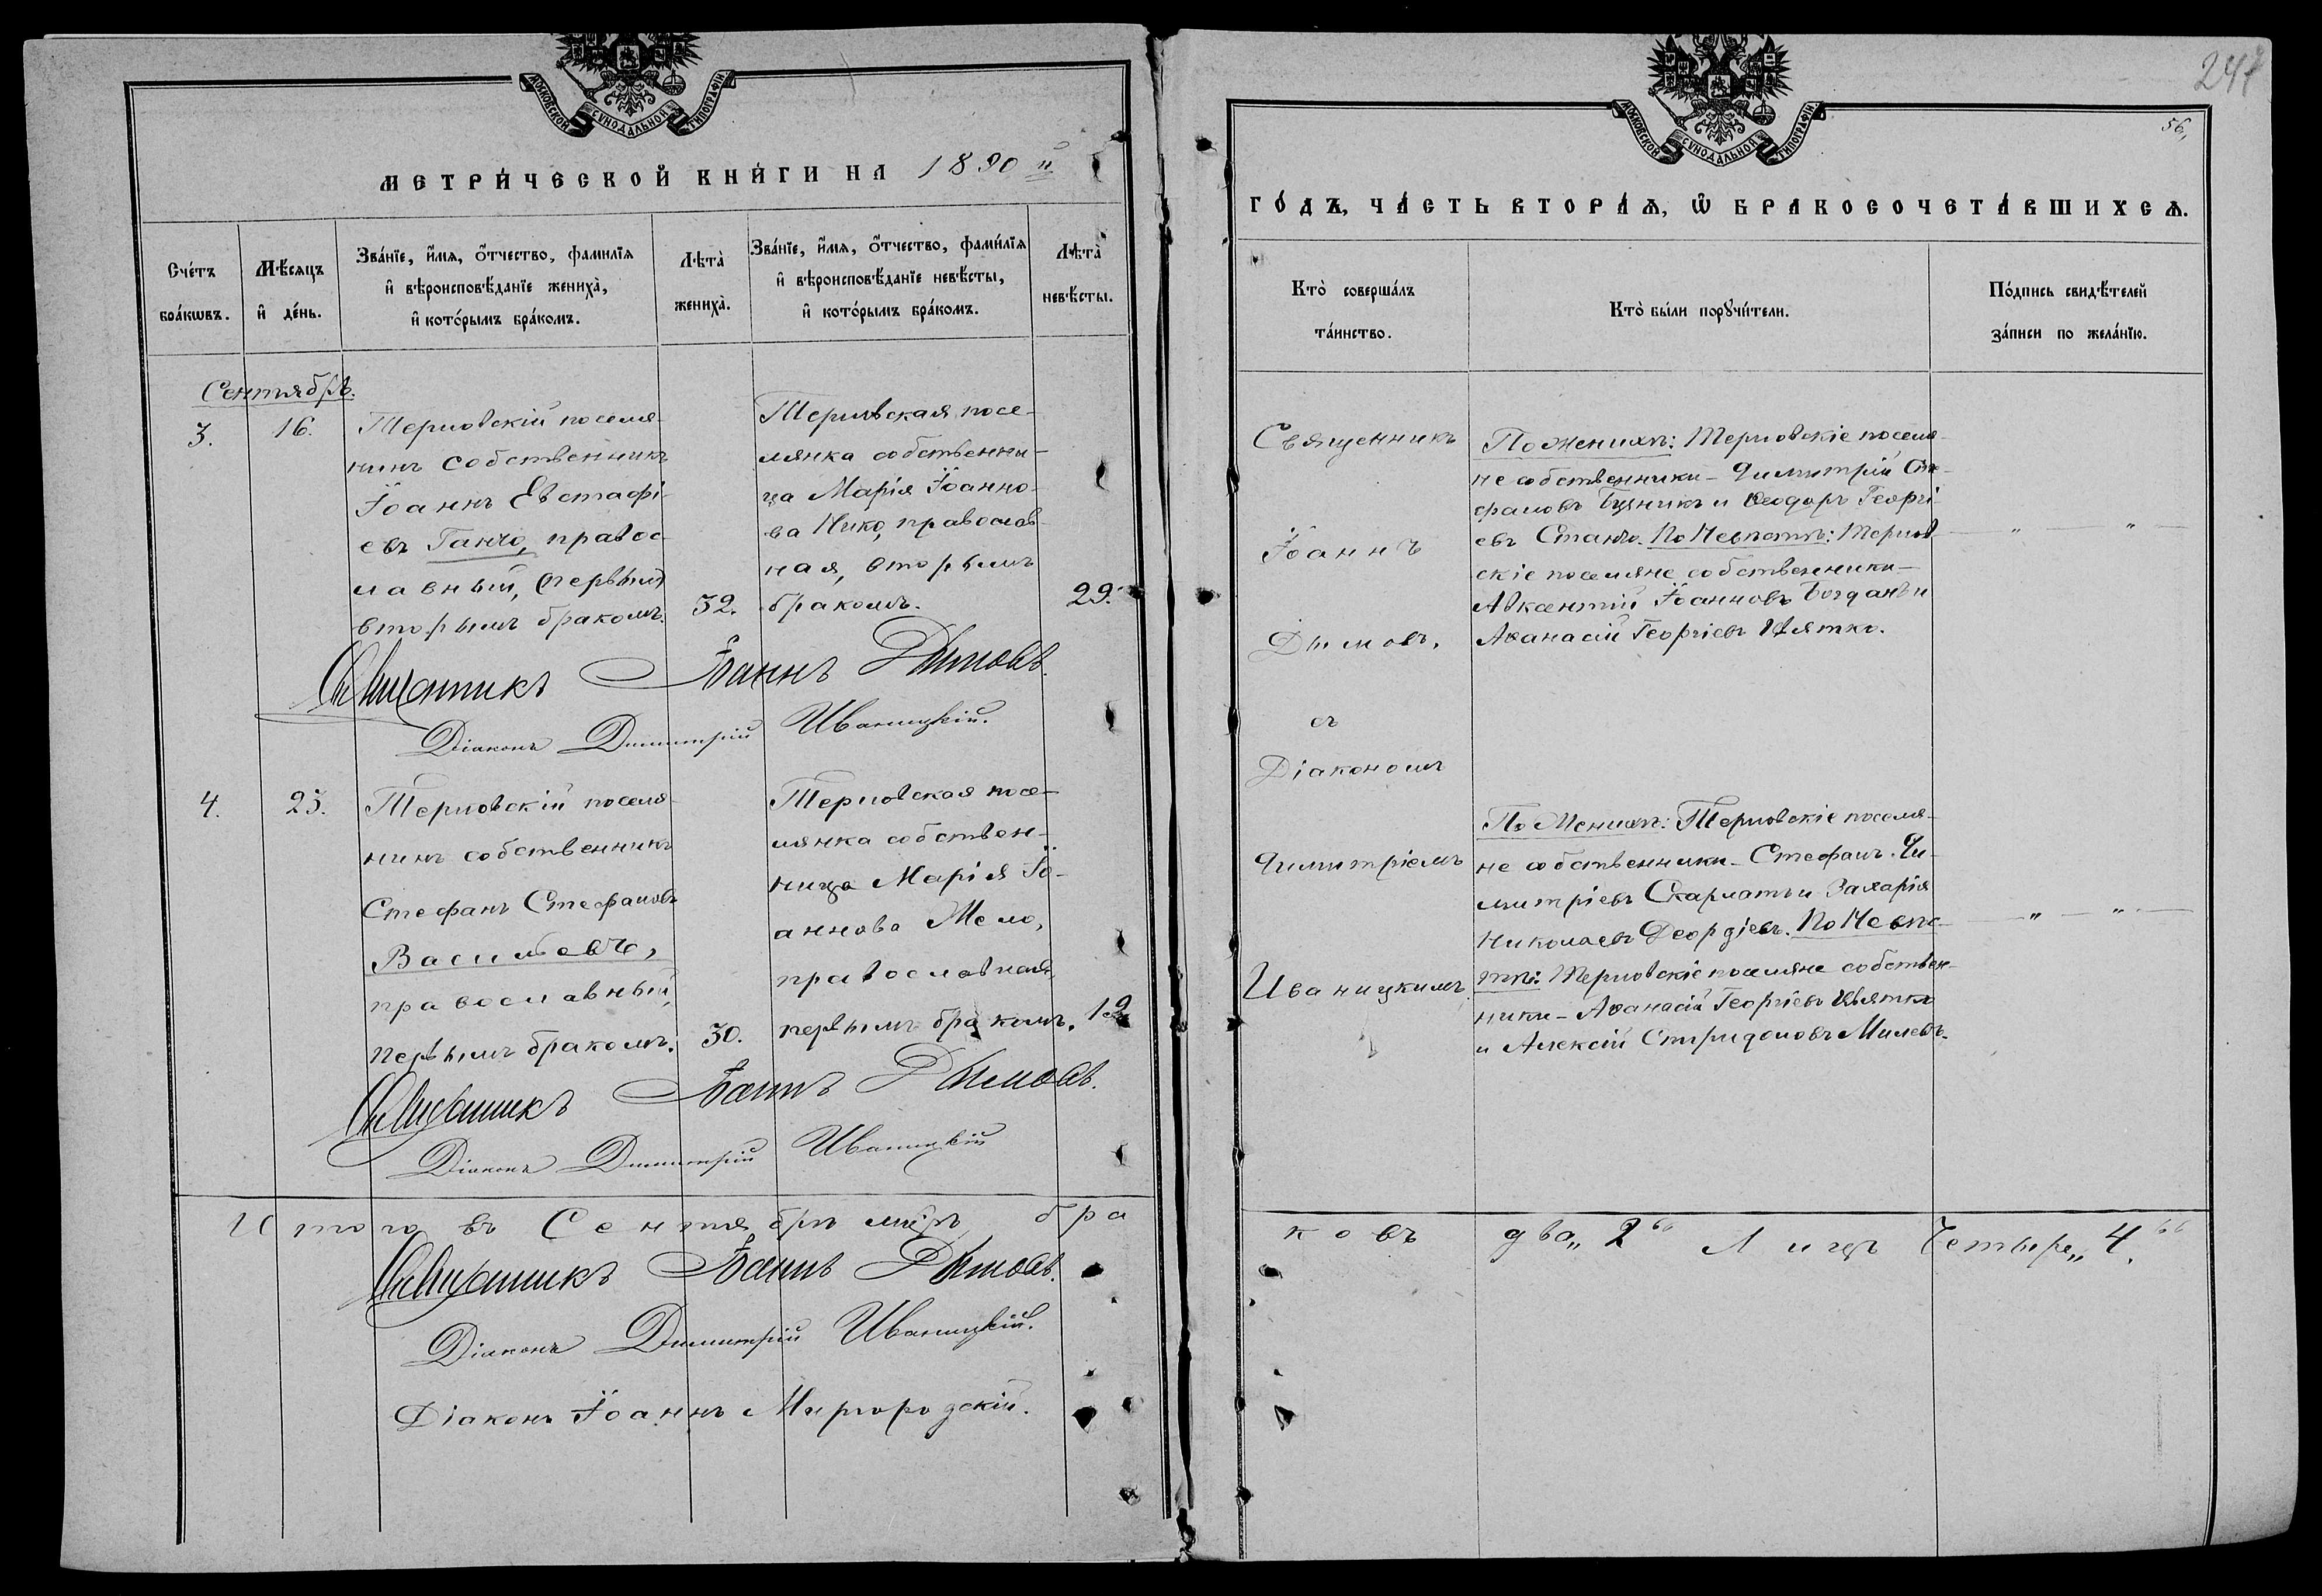 МОСКОВСКОЙ СѴНОДАЛЬНОЙ ТИПОГРАФІИ
МЕТРИ́ЧЕСКОЙ КНИ́ГИ НА 1890 й
Сче́тъ бра́кѡвъ.
Мѣ́сяцъ и҆ де́нь.
Зва́нїе, и҆́мѧ, ѻ҆́тчество, фами́лїѧ
и҆ вѣроисповѣ́данїе женихà,
и҆ кото́рымъ бра́комъ.
Лѣтà женихà.
Зва́нїе, и҆́мѧ, ѻ҆́тчество, фами́лїѧ
и҆ вѣроисповѣ́данїе невѣ́сты,
и҆ кото́рымъ бра́комъ.
Лѣтà невѣ́сты.
Сентябрь.
3.
16.
Терновскій поселя-
нинъ собственникъ
Іоаннъ Евстафі-
евъ Ганчо, правос-
лавный, (первым)
вторымъ бракомъ.
32.
Терновская посе-
лянка собственни-
ца Марія Іоанно-
ва Нико, православ-
ная, вторымъ
бракомъ.
29.
Священникъ Іоаннъ Дымовъ.
Діаконъ Димитрій Иваницкій.
4.
25.
Терновскій поселя-
нинъ собственникъ
Стефанъ Стефановъ
Васильевъ,
православный,
первымъ бракомъ.
30.
Терновская посе-
лянка собствен-
ница Марія Іо-
аннова Мело,
православная,
первымъ бракомъ.
19.
Священникъ Іоаннъ Дымовъ.
Діаконъ Димитрій Иваницкій
Итого въ Сентябрѣ мцѣ бра
Священникъ Іоаннъ Дымовъ.
Діаконъ Димитрій Иваницкій.
Діаконъ Іоаннъ Миргородскій.
247
МОСКОВСКОЙ СѴНОДАЛЬНОЙ ТИПОГРАФІИ
56,
ГО́ДЪ, ЧА́СТЬ ВТОРА́Ѧ, Ѽ БРАКОСОЧЕТА́ВШИХСѦ.
Ктò соверша́лъ
та́инство.
Ктò бы́ли порꙋчи́тели.
По́дпись свидѣ́телей
за́писи по жела́нїю.
Священникъ
Іоаннъ
Дымовъ,
съ
Діакономъ
Димитріемъ
Иваницкимъ.
По женихѣ: Терновскіе поселя-
не собственники – Димитрій Сте-
фановъ Буяникъ и Ѳеодоръ Георгі-
евъ Станчо. По Невѣстѣ: Тернов-
скіе поселяне собственники –
Авксентій Іоанновъ Богданъ и
Аѳанасій Георгіевъ Цвятко.
— „ — „ —
По Женихѣ: Терновскіе поселя-
не собственники – Стефанъ Ди-
митріевъ Скарлатъ и Захарія
Николаевъ Деордіевъ. По Невѣс-
тѣ: Терновскіе поселяне собствен-
ники – Аѳанасій Георгіевъ Цвятко
и Алексій Спиридоновъ Милевъ.
— „ — „ —
ковъ два „2“ Лицъ Четыре „4.“